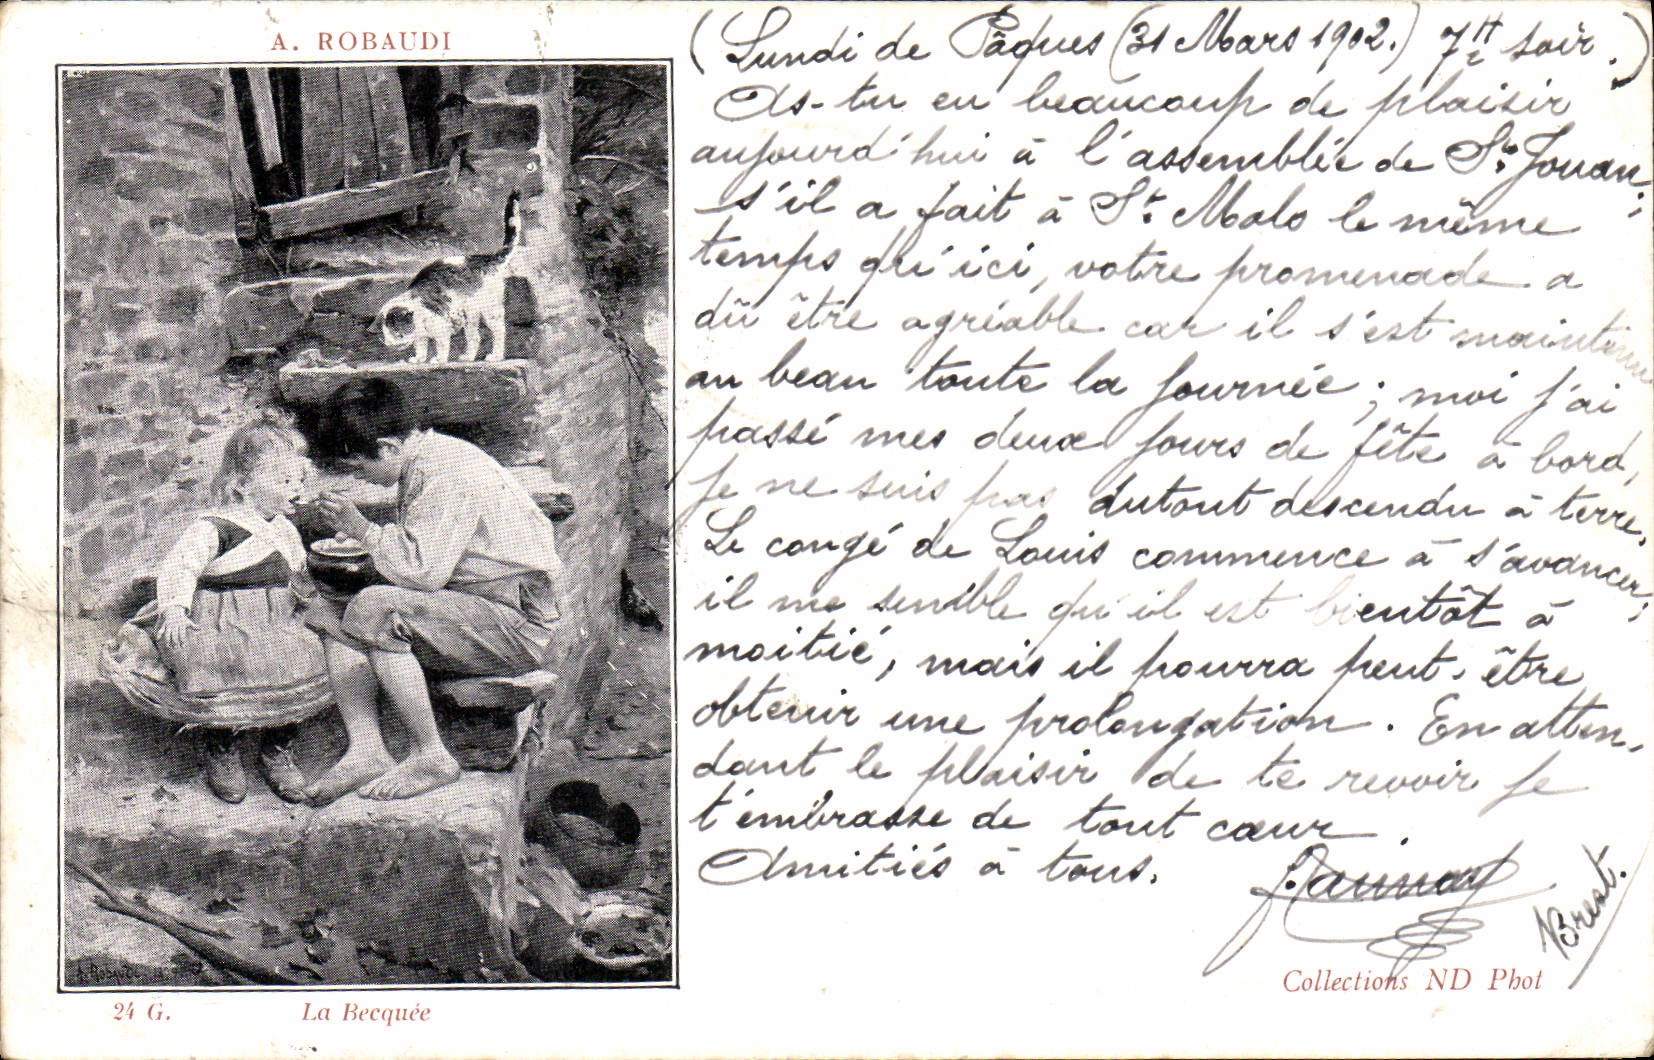 A. ROBAUDI
(Lundi de Pâques (31 Mars 1902.) 7 H 1/2 soir.)
As-tu eu beaucoup de plaisir
aujourd'hui à l'assemblée de St. Jouan;
s'il a fait à St. Malo le même
temps qu'ici, votre promenade a
dû être agréable car il s'est maintenu
au beau toute la journée; moi j'ai
passé mes deux jours de fête à bord,
je ne suis pas dutout descendu à terre.
Le congé de Louis commence à s'avancer;
il me semble qu'il est bientôt à
moitié, mais il pourra peut-être
obtenir une prolongation. En atten-
dant le plaisir de te revoir je
t'embrasse de tout cœur.
Amitiés à tous.
Brest.
A. Robaudi
Collections ND Phot
24 G. La Becquée